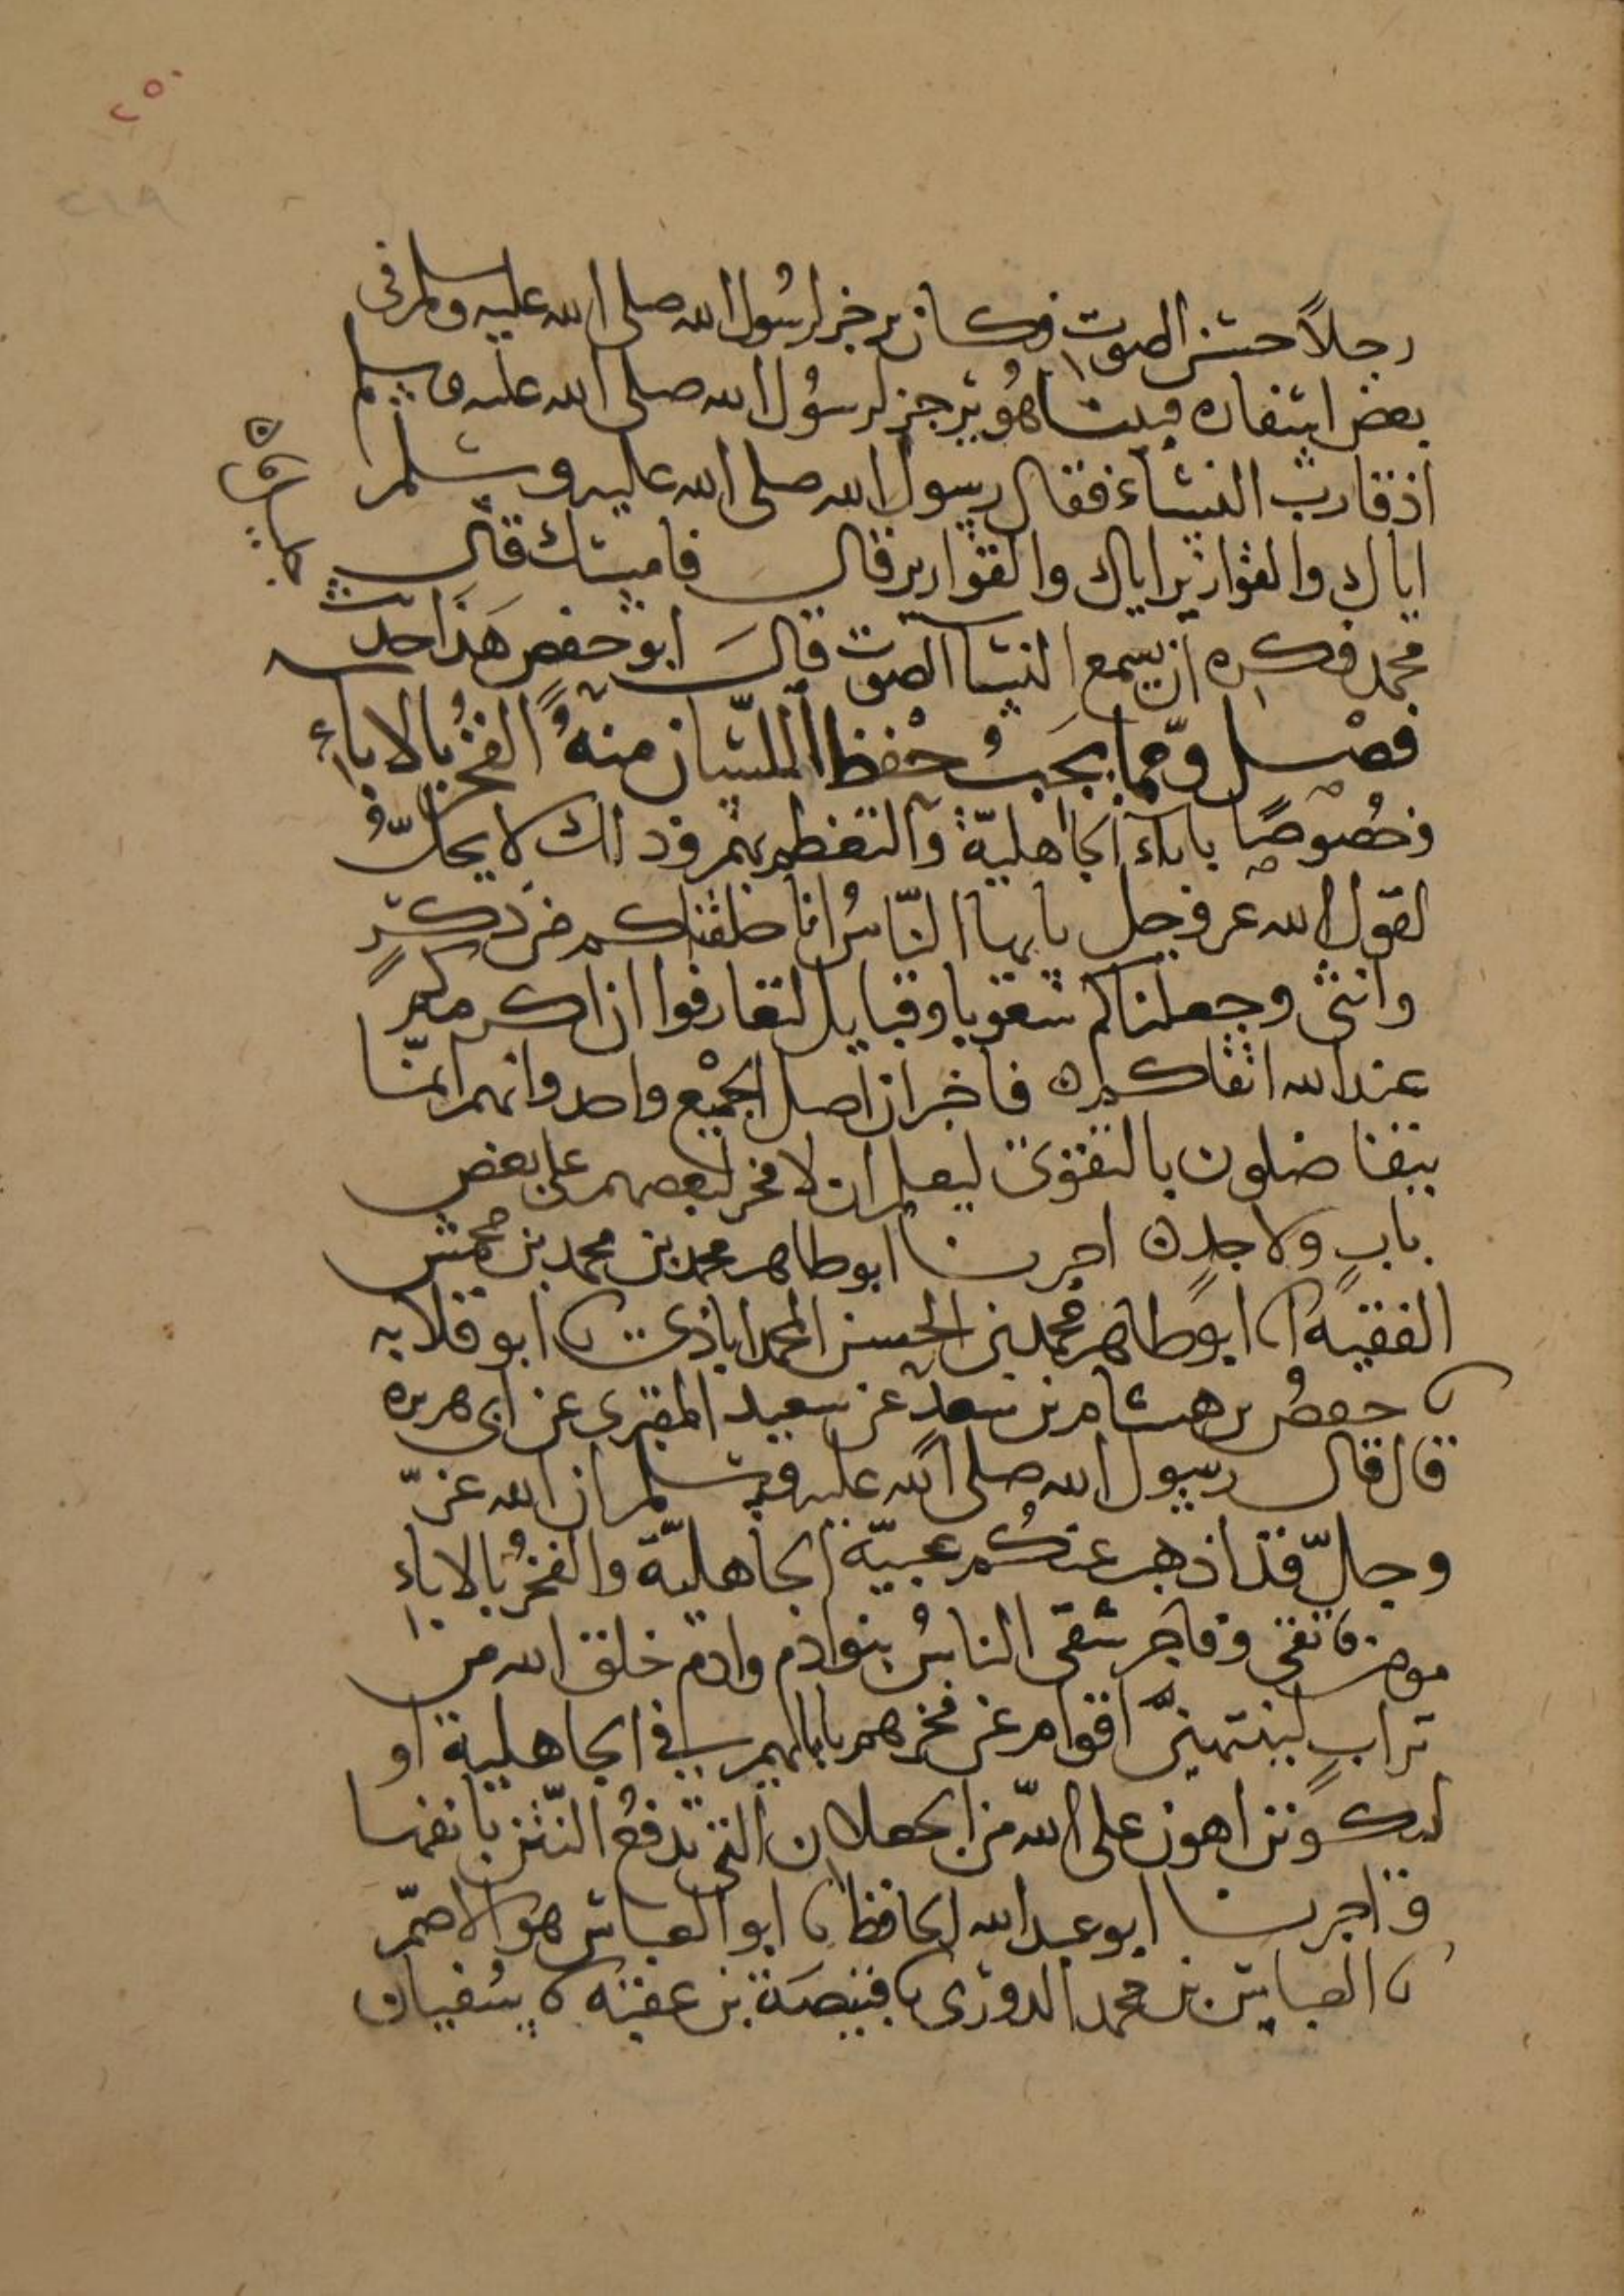 ٢٥٠
٢١٩
رجلاً حسن الصوت وكان يرجز لرسُول الله صلى الله عليه وسلم في
بعض اسفاره فبينا هُو يرجز لرسُول الله صلى الله عليه وسلم
اذ قارب النساء فقال رسول الله صلى الله عليه وسلم
اياك والقوارير اياك والقوارير قال فامسك قال
محمد فكره ان يسمع النسا الصوت قال ابو حفص هذا حديث
فصْل ومّما يجبُ حفْظ اللسان منهُ الفخرُ بالاباءِ
وخصُوصًا باباء الجاهليّة والتعظم بهم وذلك لا يحلُّ
لقول الله عز وجل يايها النّاسُ انا خلقناكم من ذكرٍ
وانثى وجعلناكم شعوبا وقبايل لتعارفوا ان اكرمكم
عند الله اتقاكم ه فاخبر ان اصل الجميْع واحد وانهم انمّا
يتفاضلون بالتقوى ليعلم ان لا فخر لبعضهم على بعض
بابٍ ولا جدٍ ه اخبرنا ابو طاهر محمد بن محمد بن محمش
الفقيه انا ابو طاهر محمد بن الحسن المحمداباذي نا ابو قلابه
نا حفصُ بن هشام بن سعدٍ عن سعيد المقبري عن ابى هريره
قال قال رسول الله صلى الله عليه وسلم ان الله عزّ
وجلّ قد اذهب عنكُم عبيّة الجاهليّة والفخرُ بالاباءِ
مومن تقي وفاجر شقى الناسُ بنو ادم وادم خلق الله من
ترابٍ لينتهينّ اقوام عن فخرهم بابايهم في الجاهلية او
ليكونن اهون على اللّه من الجعلان التي تدفعُ النّتن بانفها
واخبرنا ابو عبد الله الحافظ نا ابو العباس هو الاصمّ
نا العباس بن محمد الدورى نا قبيصَة بن عقبه نا سُفيان